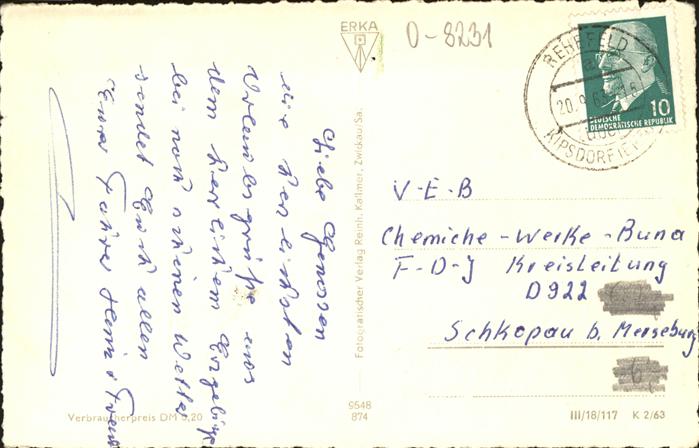 Liebe Genossen
die herlichsten
Urlaubsgrüße aus
dem herlichem Erzgebirge
bei noch schönen Wetter
sendet Euch allen
Euer Fahrer Heini
ERKA
O-8231
REHEFELD
20.9.63
KIPSDORF
10
DEUTSCHE
DEMOKRATISCHE REPUBLIK
V-E-B
Chemiche-Werke-Buna
F-D-J Kreisleitung
D922
Schkopau b. Merseburg
Fotografischer Verlag Reinh. Kallmer, Zwickau/Sa.
Verbraucherpreis DM 0,20
9548
874
III/18/117 K 2/63